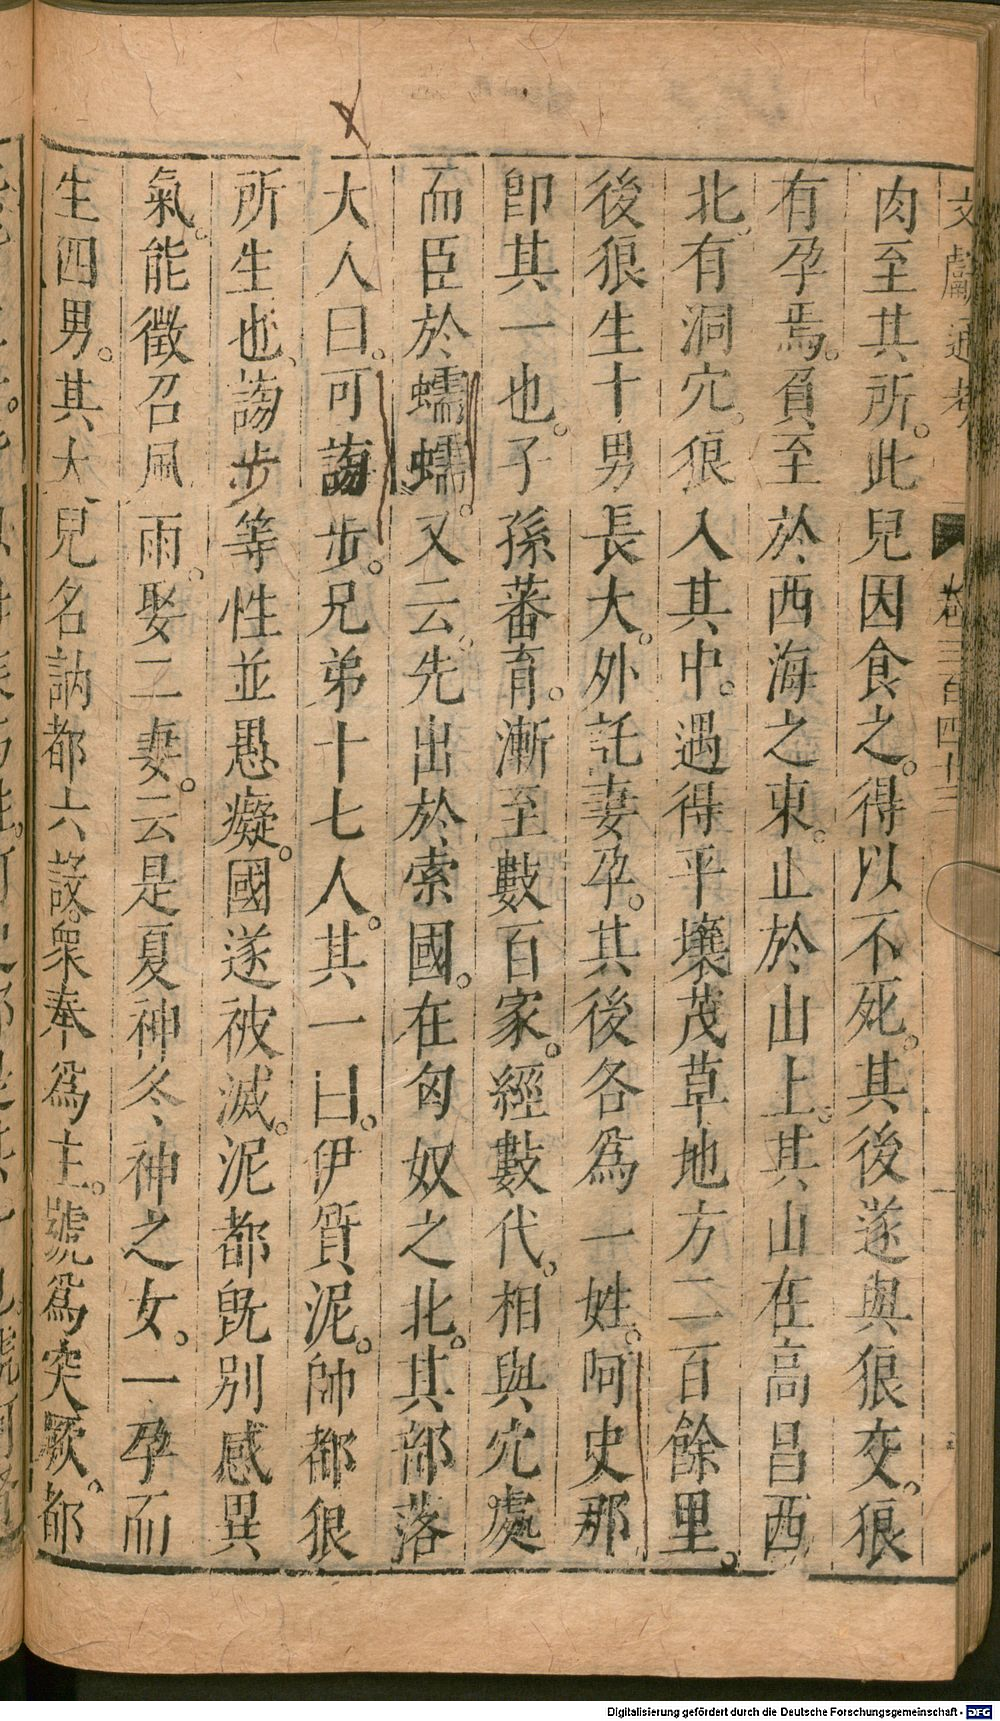 文獻通考 卷三百四十三
肉至其所。此兒因食之。得以不死。其後遂與狼交。狼
有孕焉。負至於西海之東。止於山上。其山在高昌西
北。有洞穴。狼入其中。遇得平壤茂草地方二百餘里。
後狼生十男長大。外託妻孕。其後各爲一姓。阿史那
卽其一也。子孫蕃育。漸至數百家。經數代。相與穴處
而臣於蠕蠕。又云。先出於索國。在匈奴之北。其部落
大人曰。可謭步。兄弟十七人。其一曰。伊質泥。帥都狼
所生也、謭步等性並愚癡。國遂被滅。泥都旣別感異
氣。能徵召風雨。娶二妻。云是夏神冬神之女。一孕而
生四男。其大兒名訥都六設。衆奉爲主。號爲突厥。都
Digitalisierung gefördert durch die Deutsche Forschungsgemeinschaft - DFG